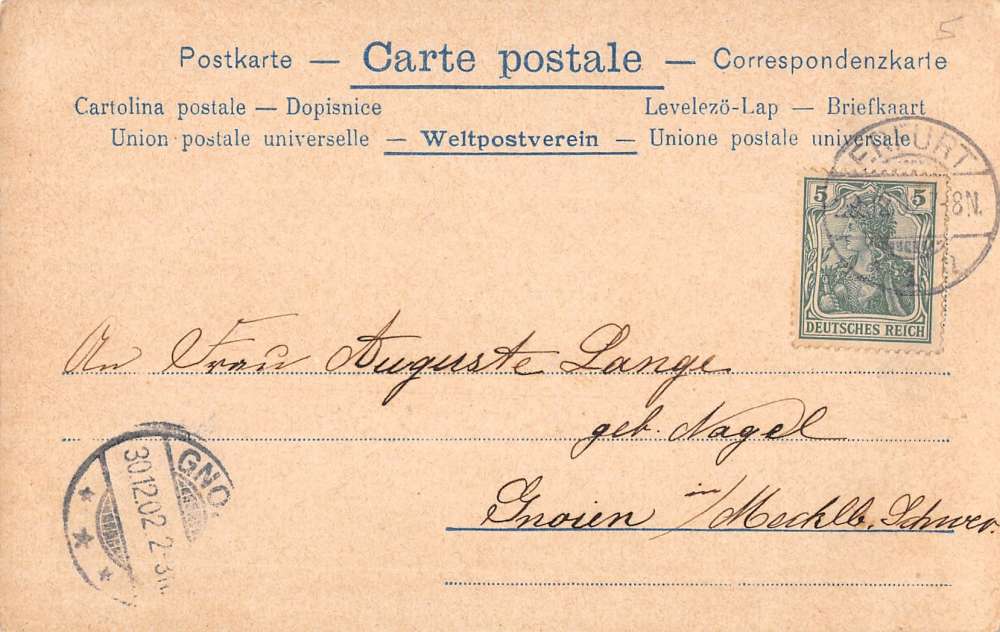 5
Postkarte — Carte postale — Correspondenzkarte
Cartolina postale — Dopisnice Levelezö-Lap — Briefkaart
Union postale universelle — Weltpostverein — Unione postale universale
ERFURT
-8N.
5 5
DEUTSCHES REICH
An Frau Auguste Lange
geb. Nagel
Gnoien in/Mecklb. Schwer.
GNO
30.12.02 2-3N